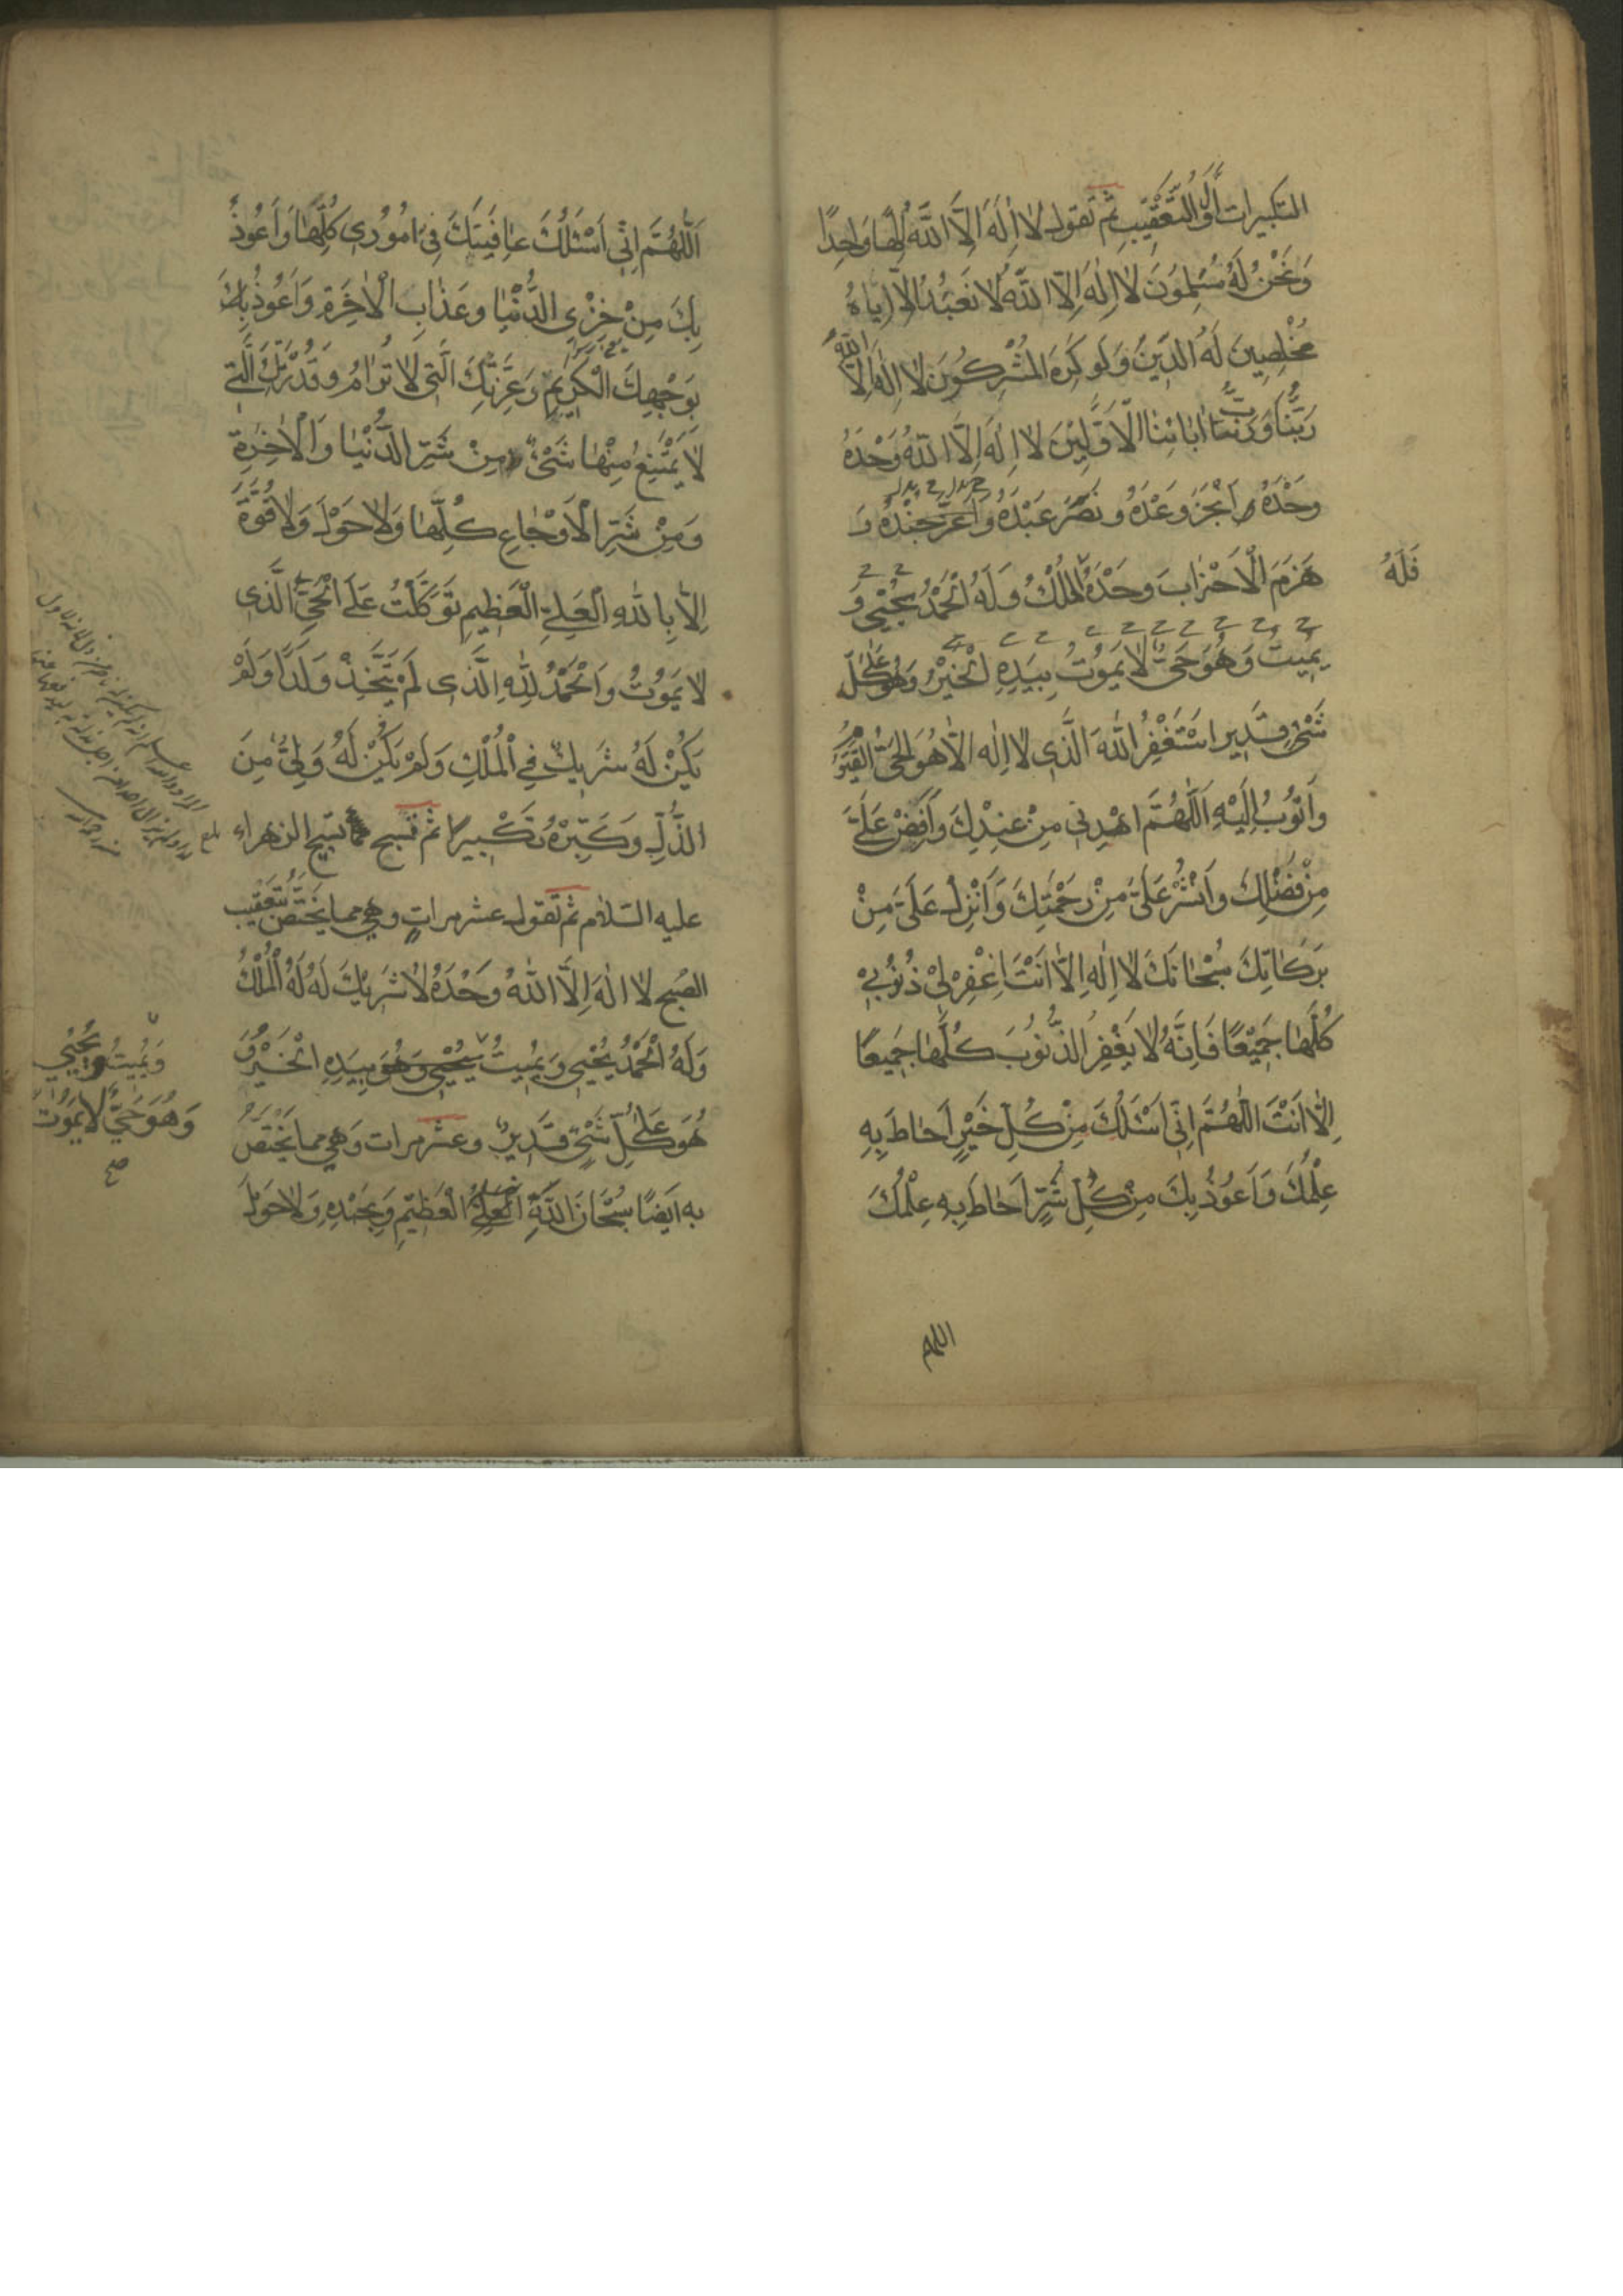 التكبيرات أول التعقيب ثم تقول لا إله إلا الله إلها واحدا
وَنَحْنُ لَهُ مُسْلِمُونَ لا اِلٰهَ اِلّا اللهُ لا نَعْبُدُ اِلّا اِيّاهُ
مُخْلِصِينَ لَهُ الدِّينَ وَلَو كَرِهَ المُشْرِكُونَ لا اِلٰهَ اِلّا اللهُ
رَبُّنَا وَرَبُّ اٰبَائِنَا الْاَوَّلِينَ لا اِلٰهَ اِلَّا اللهُ وَحْدَهُ
وَحْدَهُ اَنْجَزَ وَعْدَهُ وَنَصَرَ عَبْدَهُ وَاَعَزَّ جُنْدَهُ وَ
هَزَمَ الْاَحْزَابَ وَحْدَهُ الْمُلْكُ وَلَهُ الْحَمْدُ يُحْيِي وَ
فَلَهُ
يُمِيتُ وَهُوَ حَيٌّ لا يَمُوتُ بِيَدِهِ الْخَيْرُ وَهُوَ عَلٰى كُلِّ
شَيْءٍ قَدِيرٌ اَسْتَغْفِرُ اللهَ الَّذِي لا اِلٰهَ اِلّا هُوَ الْحَيُّ الْقَيُّومُ
وَاَتُوبُ اِلَيْهِ اَللّٰهُمَّ اهْدِنِي مِنْ عِنْدِكَ وَاَفِضْ عَلَيَّ
مِنْ فَضْلِكَ وَانْشُرْ عَلَيَّ مِنْ رَحْمَتِكَ وَاَنْزِلْ عَلَيَّ مِنْ
بَرَكَاتِكَ سُبْحَانَكَ لا اِلٰهَ اِلّا اَنْتَ اِغْفِرْ لِي ذُنُوبِي
كُلَّهَا جَمِيْعًا فَاِنَّهُ لا يَغْفِرُ الذُّنُوبَ كُلَّهَا جَمِيعًا
اِلّا اَنْتَ اَللّٰهُمَّ اِنِّي اَسْئَلُكَ مِنْ كُلِّ خَيْرٍ اَحَاطَ بِهِ
عِلْمُكَ وَاَعُوذُ بِكَ مِنْ كُلِّ شَرٍّ اَحَاطَ بِهِ عِلْمُكَ
اللهم
اَللّٰهُمَّ اِنِّي اَسْئَلُكَ عَافِيَتَكَ فِي اُمُوْرِي كُلِّهَا وَاَعُوذُ
بِكَ مِنْ خِزْيِ الدُّنْيَا وَعَذَابِ الْاٰخِرَةِ وَاَعُوذُ بِكَ
بِوَجْهِكَ الْكَرِيمِ وَعِزَّتِكَ الَّتِي لا تُرَامُ وَقُدْرَتِكَ الَّتِي
لا يَمْتَنِعُ مِنْهَا شَيْءٌ مِنْ شَرِّ الدُّنْيَا وَالْاٰخِرَةِ
وَمِنْ شَرِّ الْاَوْجَاعِ كُلِّهَا وَلا حَوْلَ وَلا قُوَّةَ
اِلّا بِاللهِ الْعَلِيِّ الْعَظِيمِ تَوَكَّلْتُ عَلَى الْحَيِّ الَّذِي
لا يَمُوتُ وَالْحَمْدُ لِلّٰهِ الَّذِي لَمْ يَتَّخِذْ وَلَدًا وَلَمْ
يَكُنْ لَهُ شَرِيكٌ فِي الْمُلْكِ وَلَمْ يَكُنْ لَهُ وَلِيٌّ مِنَ
الذُّلِّ وَكَبِّرْهُ تَكْبِيرًا ثم تسبح تسبيح الزهراء
عليه السلام ثم تقول عشر مرات وهي مما يختص بتعقيب
الصبح لا اِلٰهَ اِلَّا اللهُ وَحْدَهُ لا شَرِيْكَ لَهُ لَهُ الْمُلْكُ
وَلَهُ الْحَمْدُ يُحْيِي وَيُمِيتُ يُحْيِي وَهُوَ بِيَدِهِ الْخَيْرُ وَ
وَيُمِيتُ وَيُحْيِي
وَهُوَ حَيٌّ لا يَمُوتُ
صح
هُوَ عَلٰى كُلِّ شَيْءٍ قَدِيرٌ وعشر مرات وهي مما يختص
به ايضا سُبْحَانَ اللهِ الْعَلِيِّ الْعَظِيمِ وَبِحَمْدِهِ وَلا حَوْلَ